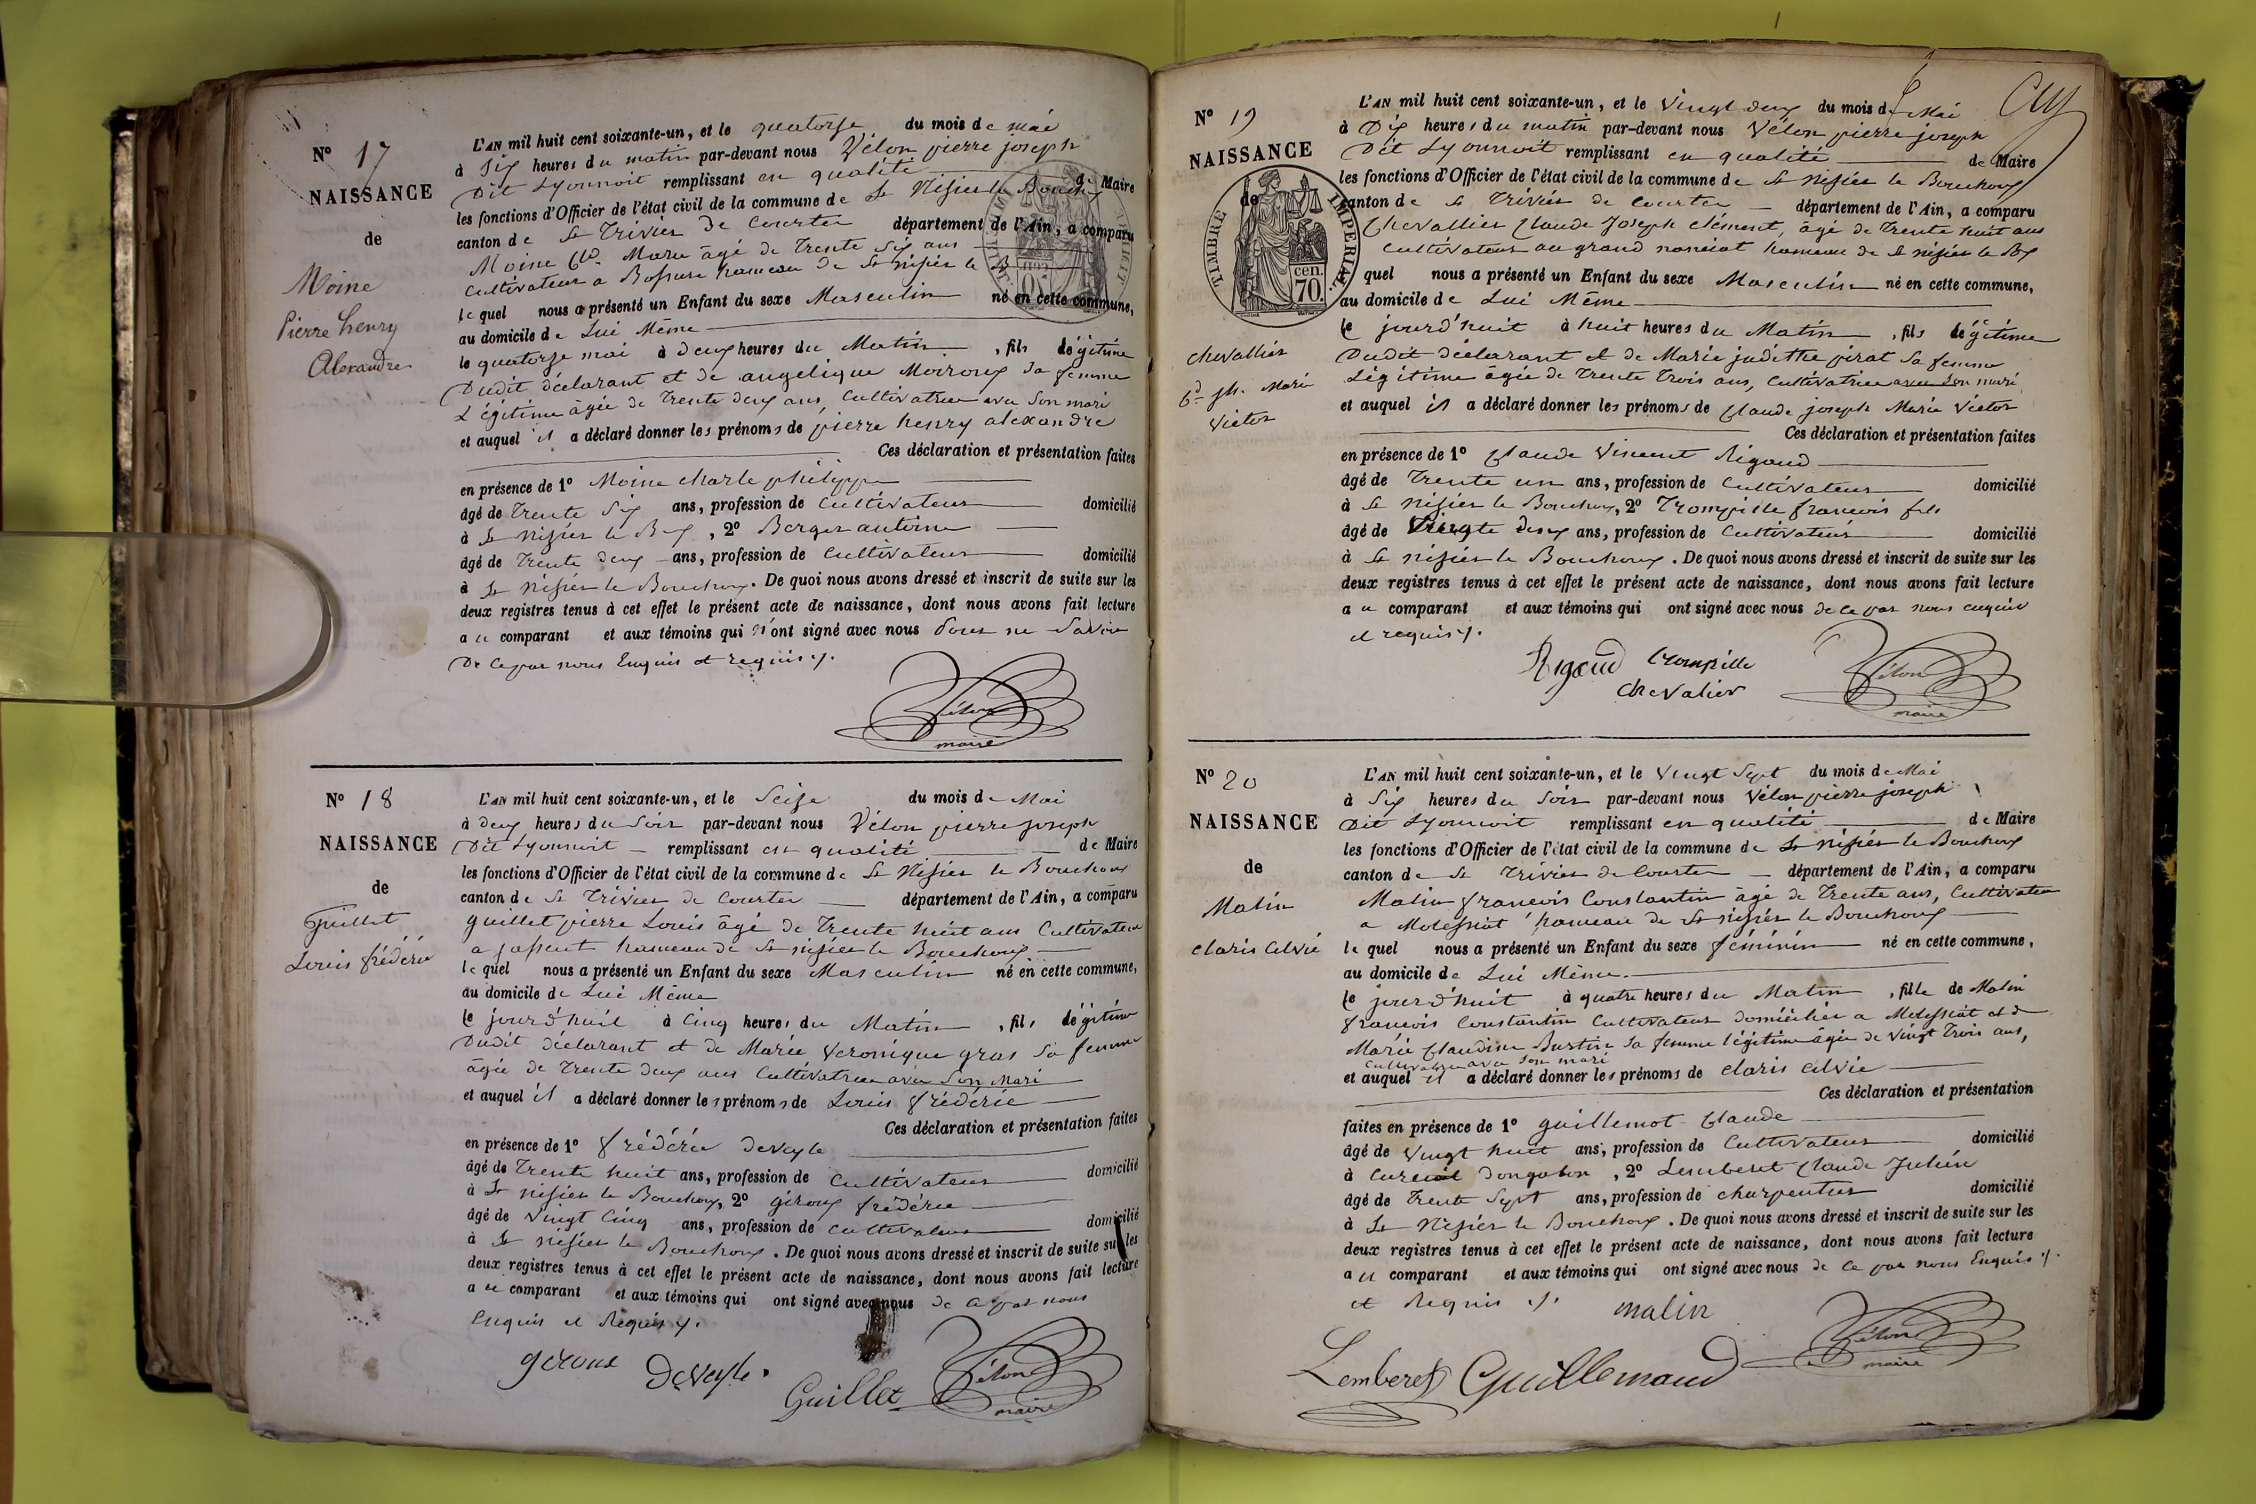 N° 17
NAISSANCE
de
Moine
Pierre henry
Alexandre
L'AN mil huit cent soixante-un, et le quatorze du mois de mai
à Six heures du matin par-devant nous Vélon pierre joseph
Dit Lyonnoit remplissant en qualité de Maire
les fonctions d'Officier de l'état civil de la commune de St Nisier le Bouchoux
canton de St Trivier de Courter département de l'Ain, a comparu
Moine Cld. Marie âgé de Trente Six ans
Cultivateur a hameau de St nisier le B
le quel nous a présenté un Enfant du sexe Masculin né en cette commune,
au domicile de Lui Même
le quatorze mai à deux heures du Matin, fils légitime
Dudit déclarant et de angelique Moiroux Sa femme
Légitime âgée de trente deux ans, Cultivatrice avec Son mari
et auquel il a déclaré donner les prénoms de pierre henry alexandre
Ces déclaration et présentation faites
en présence de 1° Moine charle philippe
âgé de Trente Six ans, profession de Cultivateur domicilié
à St nisier le Bx, 2° Berger antoine
âgé de Trente deux ans, profession de Cultivateur domicilié
à St Nisier le Bouchoux. De quoi nous avons dressé et inscrit de suite sur les
deux registres tenus à cet effet le présent acte de naissance, dont nous avons fait lecture
au comparant et aux témoins qui n'ont signé avec nous pour ne Savoir
De ce par nous Enquis et requis
Vélon
maire
N° 18
NAISSANCE
de
Guillet
Louis frédéric
L'AN mil huit cent soixante-un, et le Seize du mois de Mai
à deux heures du Soir par-devant nous Vélon pierre joseph
Dit Lyonnoit remplissant en qualité de Maire
les fonctions d'Officier de l'état civil de la commune de St Nisier le Bouchoux
canton de St Trivier de Courter département de l'Ain, a comparu
guillet pierre Louis âgé de Trente huit ans Cultivateur
a hameau de St nisier le Bouchoux
le quel nous a présenté un Enfant du sexe Masculin né en cette commune,
au domicile de Lui Même
le jourd'huit à Cinq heures du Matin, fils légitime
Dudit déclarant et de Marie Veronique gras Sa femme
âgée de Trente deux ans Cultivatrice avec Son Mari
et auquel il a déclaré donner les prénoms de Louis frédéric
Ces déclaration et présentation faites
en présence de 1° frédéric deveyle
âgé de Trente huit ans, profession de Cultivateur domicilié
à St nisier le Bouchoux, 2° géroux frédéric
âgé de Vingt Cinq ans, profession de Cultivateur domicilié
à St nisier le Bouchoux. De quoi nous avons dressé et inscrit de suite sur les
deux registres tenus à cet effet le présent acte de naissance, dont nous avons fait lecture
au comparant et aux témoins qui ont signé avec nous de ce par nous
Enquis et Requis
géroux Deveyle
Guillet
Vélon
maire
N° 19
NAISSANCE
de
TIMBRE IMPERIAL
70 cen.
chevallier
Cd. jh. Marie
Victor
L'AN mil huit cent soixante-un, et le Vingt deux du mois de Mai
à Dix heures du matin par-devant nous Vélon pierre joseph
Dit Lyonnoit remplissant en qualité de Maire
les fonctions d'Officier de l'état civil de la commune de St Nisier le Bouchoux
canton de St Trivier de Courter département de l'Ain, a comparu
Chevallier Claude Joseph Clément, âgé de Trente huit ans
Cultivateur au grand hameau de St nisier le Bx
quel nous a présenté un Enfant du sexe Masculin né en cette commune,
au domicile de Lui Même
le jourd'huit à huit heures du Matin, fils légitime
Dudit déclarant et de Marie judithe pirat Sa femme
Légitime âgée de Trente Trois ans, Cultivatrice avec Son mari
et auquel il a déclaré donner les prénoms de Claude joseph Marie Victor
Ces déclaration et présentation faites
en présence de 1° Claude Vincent Rigaud
âgé de Trente un ans, profession de Cultivateur domicilié
à St Nisier le Bouchoux, 2° Trompille francois fils
âgé de Vingte deux ans, profession de Cultivateur domicilié
à St nisier le Bouchoux. De quoi nous avons dressé et inscrit de suite sur les
deux registres tenus à cet effet le présent acte de naissance, dont nous avons fait lecture
au comparant et aux témoins qui ont signé avec nous de ce par nous enquis
et requis
Rigaud trompille
chevalier
Vélon
maire
N° 20
NAISSANCE
de
Matin
claris Celvie
L'AN mil huit cent soixante-un, et le Vingt Sept du mois de Mai
à Six heures du Soir par-devant nous Vélon pierre joseph
Dit Lyonnoit remplissant en qualité de Maire
les fonctions d'Officier de l'état civil de la commune de St Nisier le Bouchoux
canton de St Trivier de Courter département de l'Ain, a comparu
Matin francois Constantin âgé de Trente ans, Cultivateur
a hameau de St nisier le Bouchoux
le quel nous a présenté un Enfant du sexe féminin né en cette commune,
au domicile de Lui Même
le jourd'huit à quatre heures du Matin, fille de Matin
francois Constantin Cultivateur domicilié a et de
Marie Claudine Burtin Sa femme légitime âgée de Vingt Trois ans,
Cultivatrice avec Son mari
et auquel il a déclaré donner les prénoms de claris Celvie
Ces déclaration et présentation
faites en présence de 1° guillemot Claude
âgé de Vingt huit ans, profession de Cultivateur domicilié
à Curciat dongalon, 2° Lemberet Claude Julien
âgé de Trente Sept ans, profession de charpentier domicilié
à St Nisier le Bouchoux. De quoi nous avons dressé et inscrit de suite sur les
deux registres tenus à cet effet le présent acte de naissance, dont nous avons fait lecture
au comparant et aux témoins qui ont signé avec nous de ce par nous Enquis
et Requis
matin
Lemberet Guillemaud
Vélon
maire